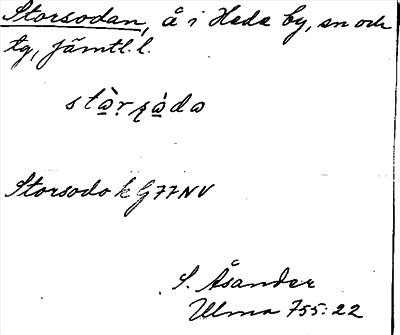 Storsodan, å i Hede by, sn och
tg, jämtl. l.
Storsodo k G77NV
S. Åsander
Ulma 755:22